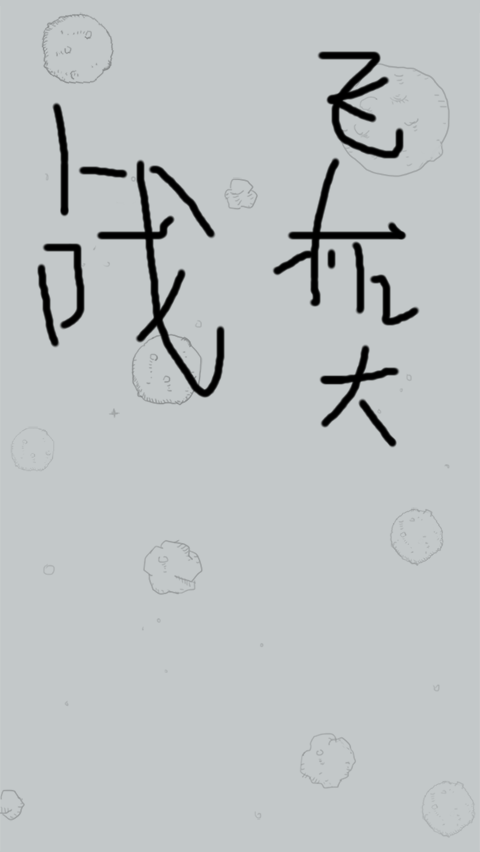 飞机大
战